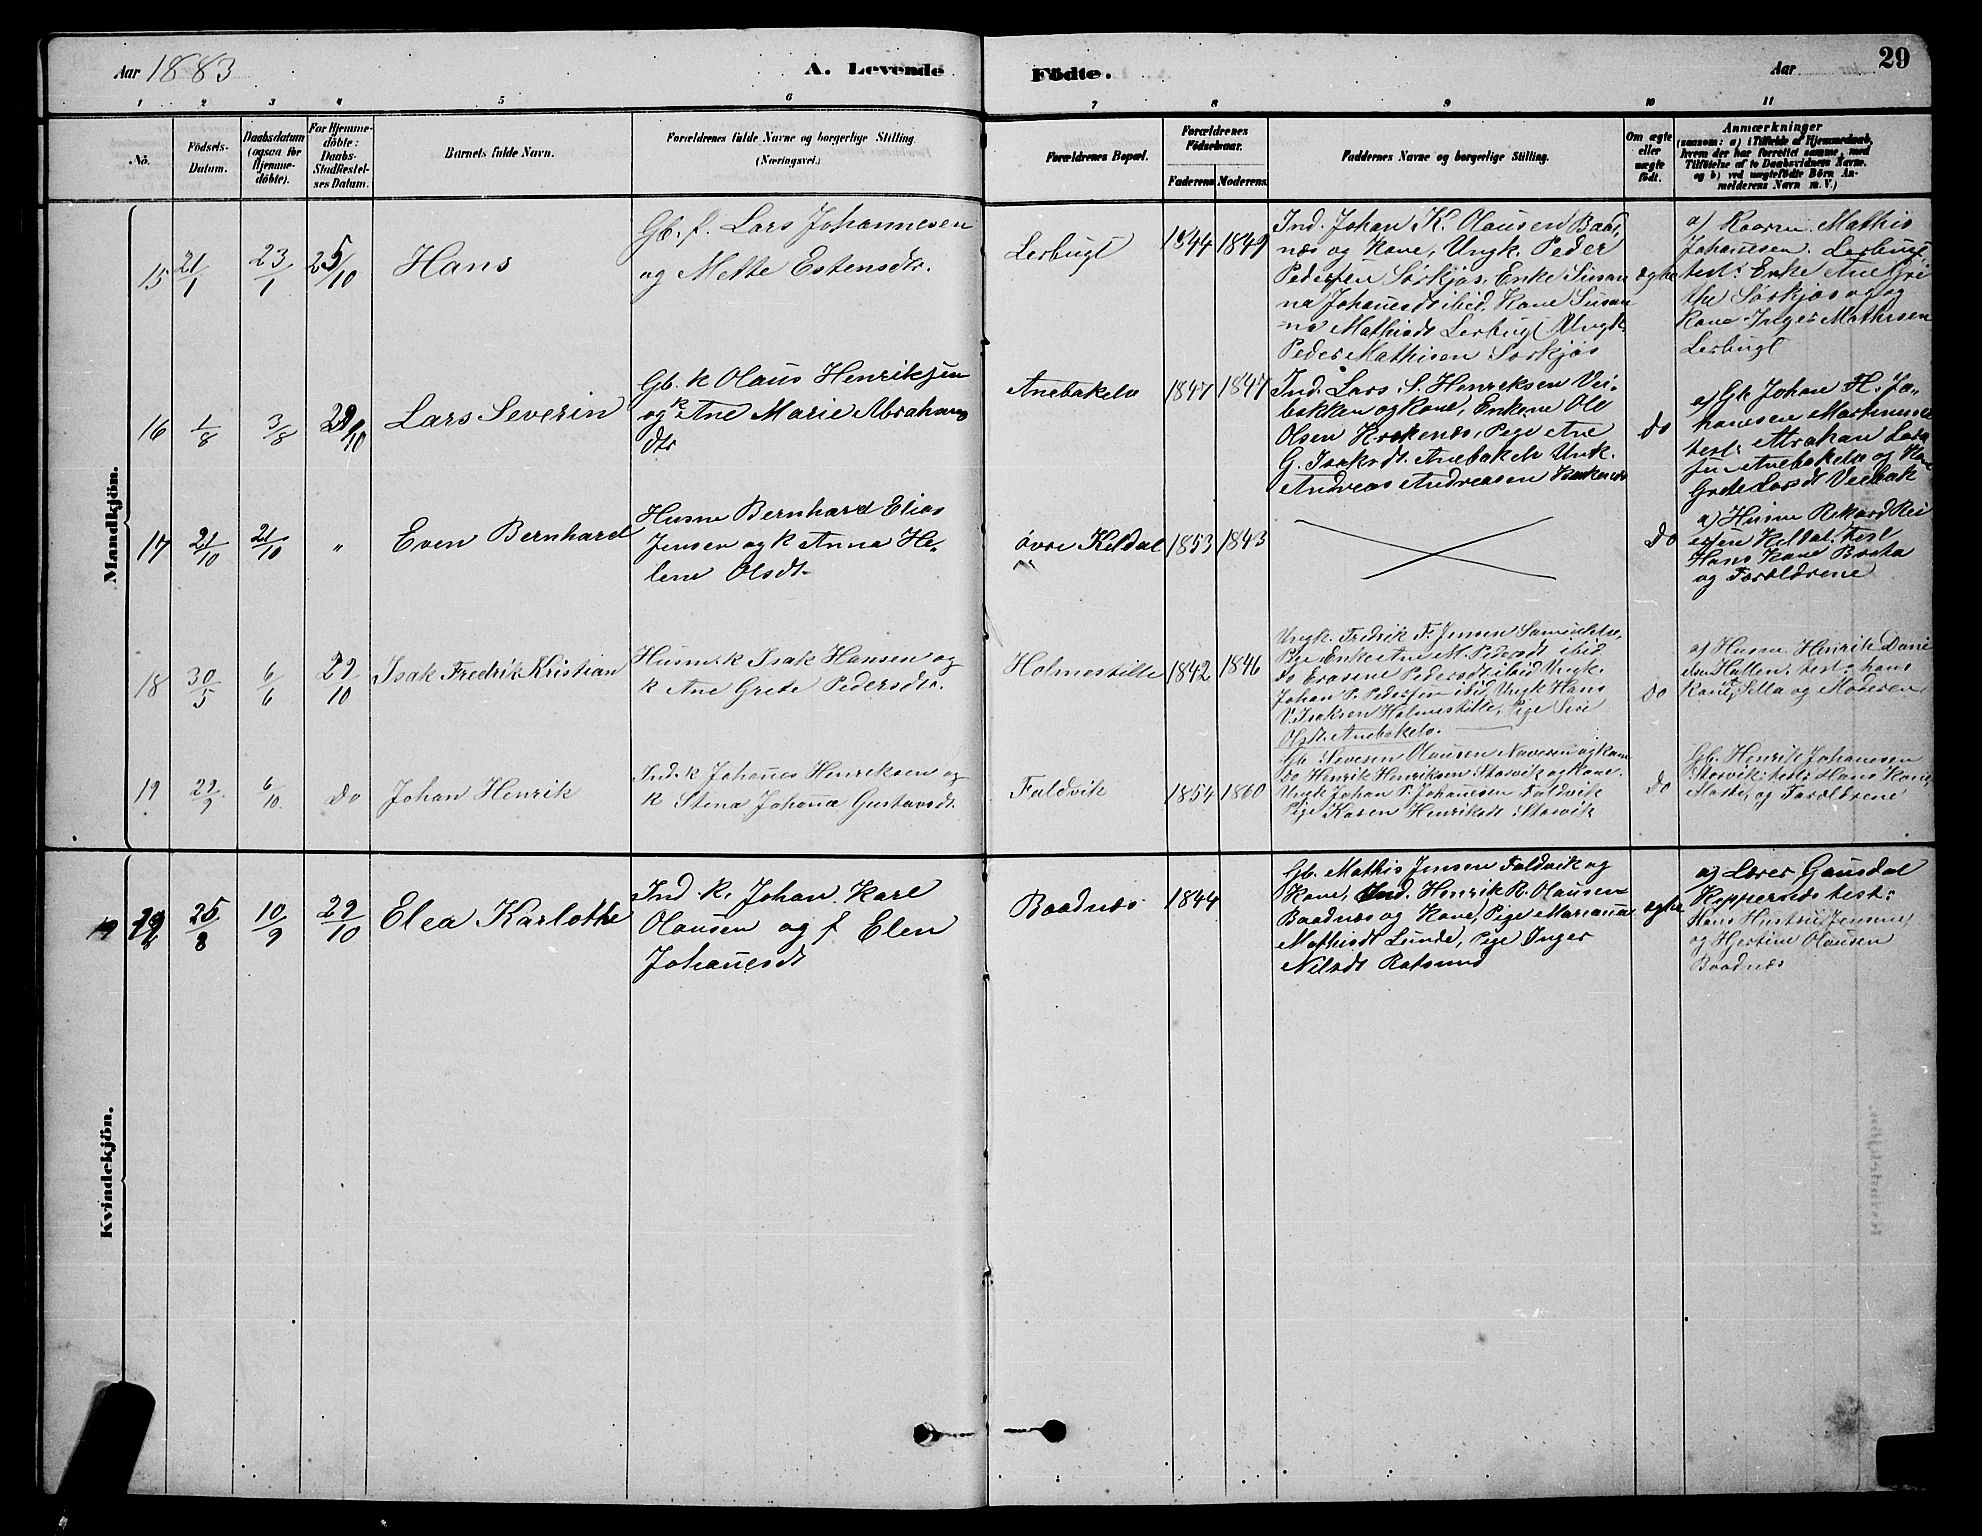 Aar 1883
A. Levende Födte.
Aar
29
1 2 3 4 5 6 7 8 9 10 11
No.
Födsels-
Datum.
Daabsdatum
(ogsaa for
Hjemme-
döbte).
For Hjemme-
döbte:
Daabs-
Stadfæstel-
ses Datum.
Barnets fulde Navn.
Forældrenes fulde Navne og borgerlige Stilling
(Næringsvei.)
Forældrenes Bopæl.
Forældrenes
Födselsaar.
Faderens Moderens.
Faddernes Navne og borgerlige Stilling.
Om ægte
eller
uægte
födt.
Anmærkninger
(saasom: a) i Tilfælde af Hjemmedaab,
hvem der har forrettet samme, med
Tilföielse af to Daabsvidners Navne,
og b) ved uægtefödte Börn An-
melderens Navn m. V.)
Mandkjön.
15
21/1
23/1
25/10
Hans
Gb. f. Lars Johannesen
og Mette Estensdtr.
Lerbugt
1844
1849
Ind. Johan K. Olausen Baad-
næs og Kone, Ungk. Peder
Pedersen Sørkjos, Enke Susan
na Johanesdt ibid, Kone Susan
na Mathisdt Lerbugt Ungk.
Peder Mathisen Sørkjos
ægte
a) Kaaren Mathis
Johanesen Lerbugt
test: Enke Ane Gre
the Sørkjos og
Kone Inger Mathisen
Lerbugt
16
1/8
3/8
29/10
Lars Severin
Gb. k Olaus Henriksen
og k Ane Marie Abrahams
dtr
Anebakelv
1847
1847
Ind. Lars S. Henriksen Vei-
bakken og Kone, Enkene Ole
Olsen Krakenæs, Pige Ane
G. Isaksdt. Anebakelv Unk.
Andreas Andreasen Krakenæs
do
a) Gb Johan H. Jo-
hansen
test: Abraham Lars
sen Anebakelv og Kone
Grete Larsdt Veibak
17
21/10
21/10
"
Even Bernhard
Husm Bernhard Elias
Jensen og k Anna He-
lene Olsdt.
øvre Keldal
1853
1843
do
a) Husm Rikard Rei
ersen Keldal. test
Hans Kone Brita
og Forældrene
18
30/5
6/6
29/10
Isak Fredrik Kristian
Husm. k Isak Hansen og
k Ane Grete Pedersdtr.
Holmestille
1842
1846
Ungk. Fredrik F. Jensen Samuelelv,
Pige Enke Ane M. Pedersdt ibid
do Erasine Pedersdt ibid Ungk.
Johan P. Pedersen ibid Ungk Hans
V. Isaksen Holmestille, Pige Sive
Olsdt. Anebakelv.
do
a) Husm. Henrik Danie
elsen Hatten, test: hans
Kone Silla og Moderen
19
29/9
6/10
do
Johan Henrik
Ind. k Johanes Henriksen og
k Stina Johana Gustavsdt.
Faldvik
1854
1860
Gb Severin Olausen Naveren og kone
do Henrik Henriksen Storvik og Kone.
Ungk Johan P. Johanesen Faldvik
Pige Karen Henriksdt Storvik
do
Gb. Henrik Johanesen
Storvik, test: Hans Kone
Marte, og Forældrene
Kvindekjön.
19
25/8
10/9
29/10
Elea Karlotte
Ind k. Johan Karl
Olausen og f Elen
Johanesdt
Baadnæs
1844
Gb. Mathis Jensen Faldvik og
Kone, Ind. Henrik R. Olausen
Baadnæs og Kone, Pige Mariana
Mathisdt Lunde, Pige Inger
Nilsdt Rotsund
ægte
a) Lærer Gausdal
Keppernæs test:
Hans Hustru Jensine,
og Hjertine Olausen
Baadnæs